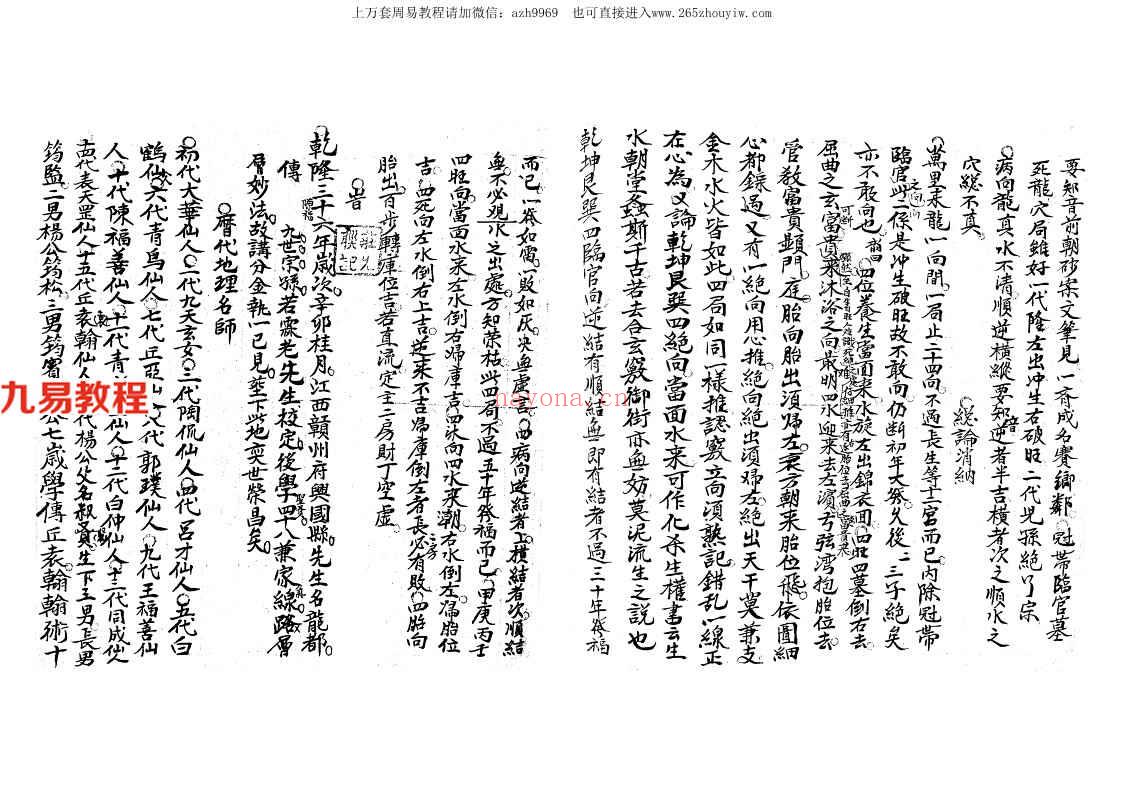 上万套周易教程请加微信：azh9969　也可直接进入www.265zhouyiw.com
要知音前朝砂案文筆見一齊成名賽鄉鄰冠帶臨官墓
死龍穴局雖好一代隆左出冲生右破旺二代兒孫絕了宗
病向龍真水不清順逆橫縱要知音逆者半吉橫者次之順水之
穴總不真
總論消納
萬里来龍一向間一局止三四向不過長生等十二宮而已内除冠帶
臨官此係是冲生破旺故不敢向仍断初年大發久後二三子絕矣
亦不敢向也 四位養生當面来水旋左出錦衣面四旺四墓倒右去
屈曲之玄富貴来沐浴之向最明四水迎来去左濱弓弦湾抱胎位去
管教富貴顯門庭胎向胎出須歸左衰方朝来胎位飛依圖細
心都錄過又有一絕向用心推絕向絕出須歸左絕出天干莫兼支
金木水火皆如此四局如同一樣推認竅立向須熟記錯乱一線正
在心為又論乾坤艮巽四絕向當面水来可作化杀生權書云生
水朝堂螽斯千古若去合玄竅御街亦無妨莫泥流生之說也
乾坤艮巽四臨官向逆結有順結無即有結者不過三十年發福
而已一發如雷一敗如灰决無虛言四病向逆結者上橫結者次順結
無不必观水之出處方知荣枯此四局不過五十年發福而已甲庚丙壬
四旺向當面水来左水倒右歸庫吉四沐向四水来潮右水倒左歸胎位
吉四死向左水倒右上吉逆来不吉歸庫倒左者長必有敗四胎向
胎出百步轉庫位吉若直流定主二房財丁空虛
乾隆三十六年歲次辛卯桂月江西贛州府興國縣先生名龍都
傳
九世宗孫若霖老先生校定後學四十八兼家線路層
層妙法故講分金執一已見塟下此地奕世榮昌矣
曆代地理名師
初代大華仙人二代九天玄女三代陶侃仙人四代呂才仙人五代白
鶴仙六代青烏仙人七代丘 仙人八代郭璞仙人九代王福善仙
人十代陳福善仙人十一代青 仙人十二代白仲仙人十三代同成仙
十四代袁天罡仙人十五代丘袁翰仙人 代楊公父名叔賢生下三男長男
筠 二男楊公筠松三男筠 公七歲學傳丘袁翰翰術十
九易教程
nayona.cn